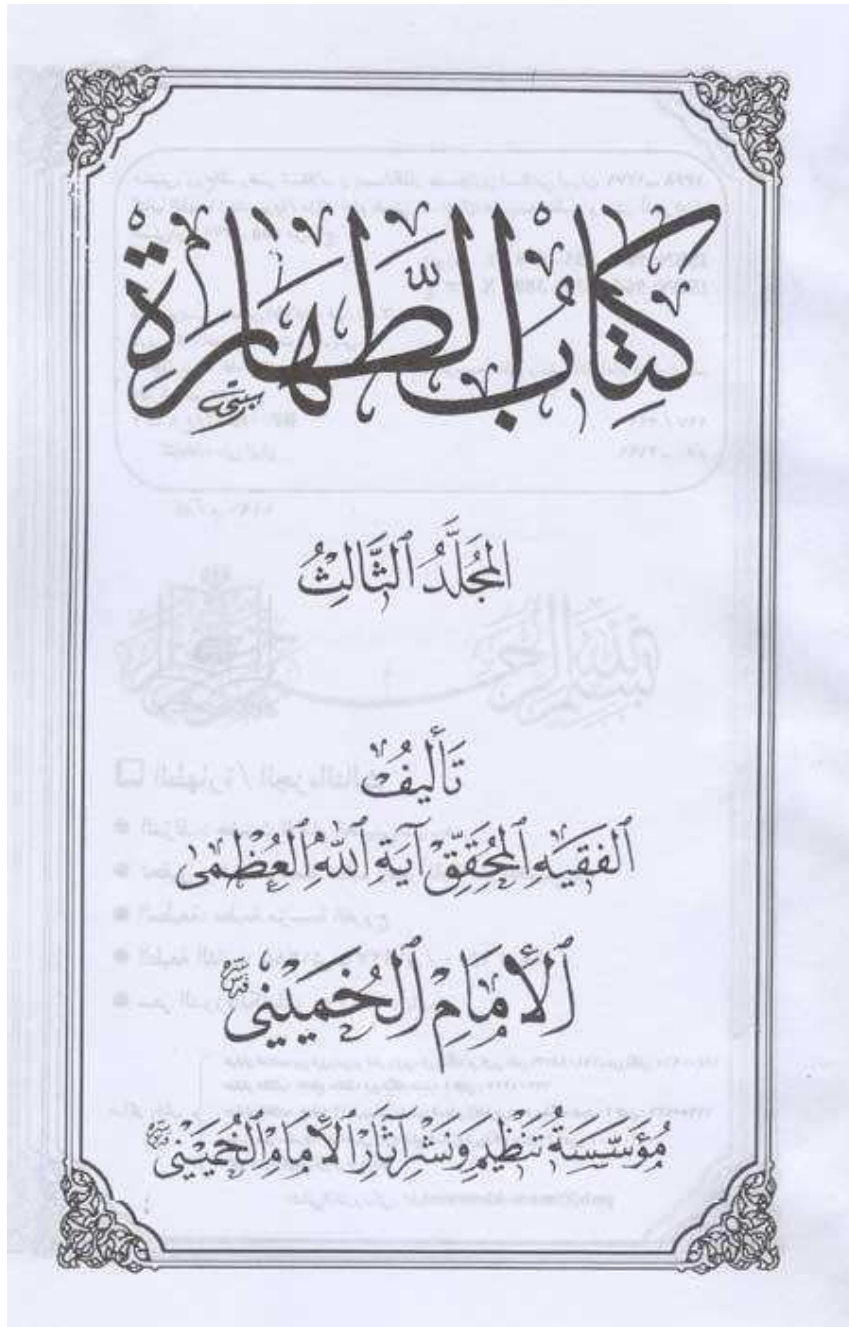 كِتَابُ الطَّهَارَةِ
المُجَلَّدُ الثَّالِثُ
تَأْلِيفُ
الفَقِيهِ المُحَقِّقِ آيَةِ اللهِ العُظْمَىٰ
الإِمَامِ الخُمَيْنِي
مُؤَسَّسَةُ تَنْظِيمِ وَنَشْرِ آثَارِ الإِمَامِ الخُمَيْنِي